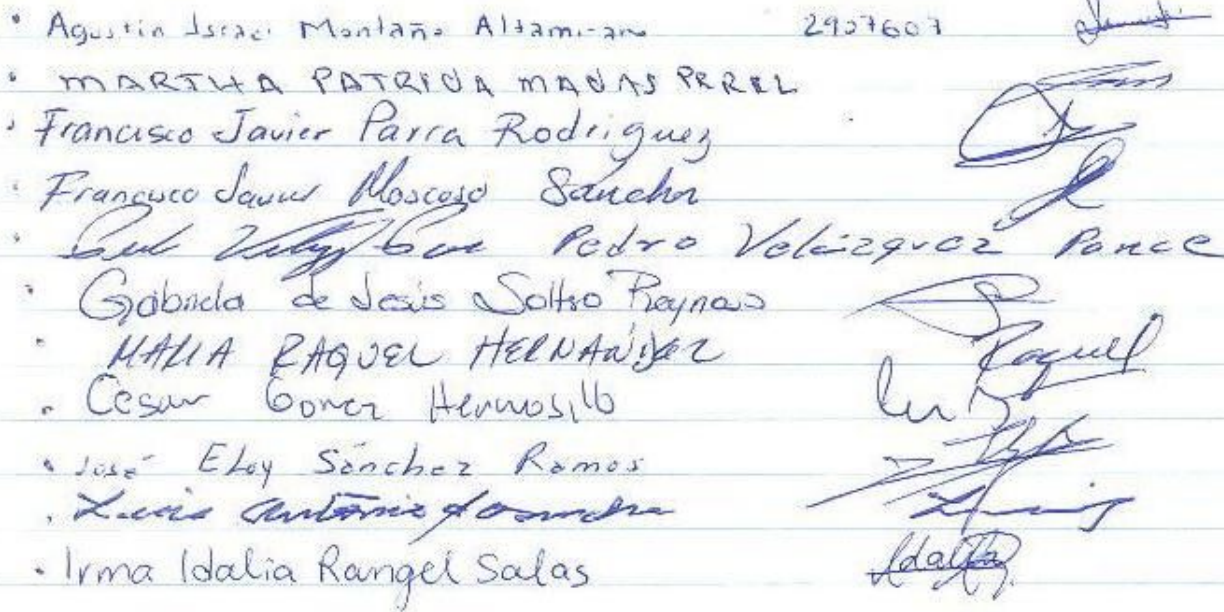 Agustin Israel Montaño Altamirano 2907607
MARTHA PATRICIA MACIAS PEREZ
Francisco Javier Parra Rodriguez
Francisco Javier Moscoso Sanchez
Pedro Velázquez Ponce
Gabriela de Jesús Reynoso
MARIA RAQUEL HERNANDEZ Raquel
Cesar Gomez Hermosillo
José Eloy Sánchez Ramos
Luis Antonio
Irma Idalia Rangel Salas Idalia